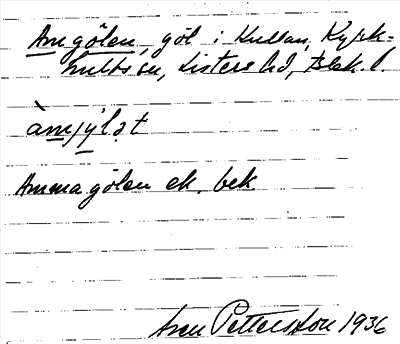 Amgölen, göl i Kullan, Kyrk=
hults sn, Listers hd, Blek. l.
àmjýlət
Ammagölen ek. bek
Sven Pettersson 1936